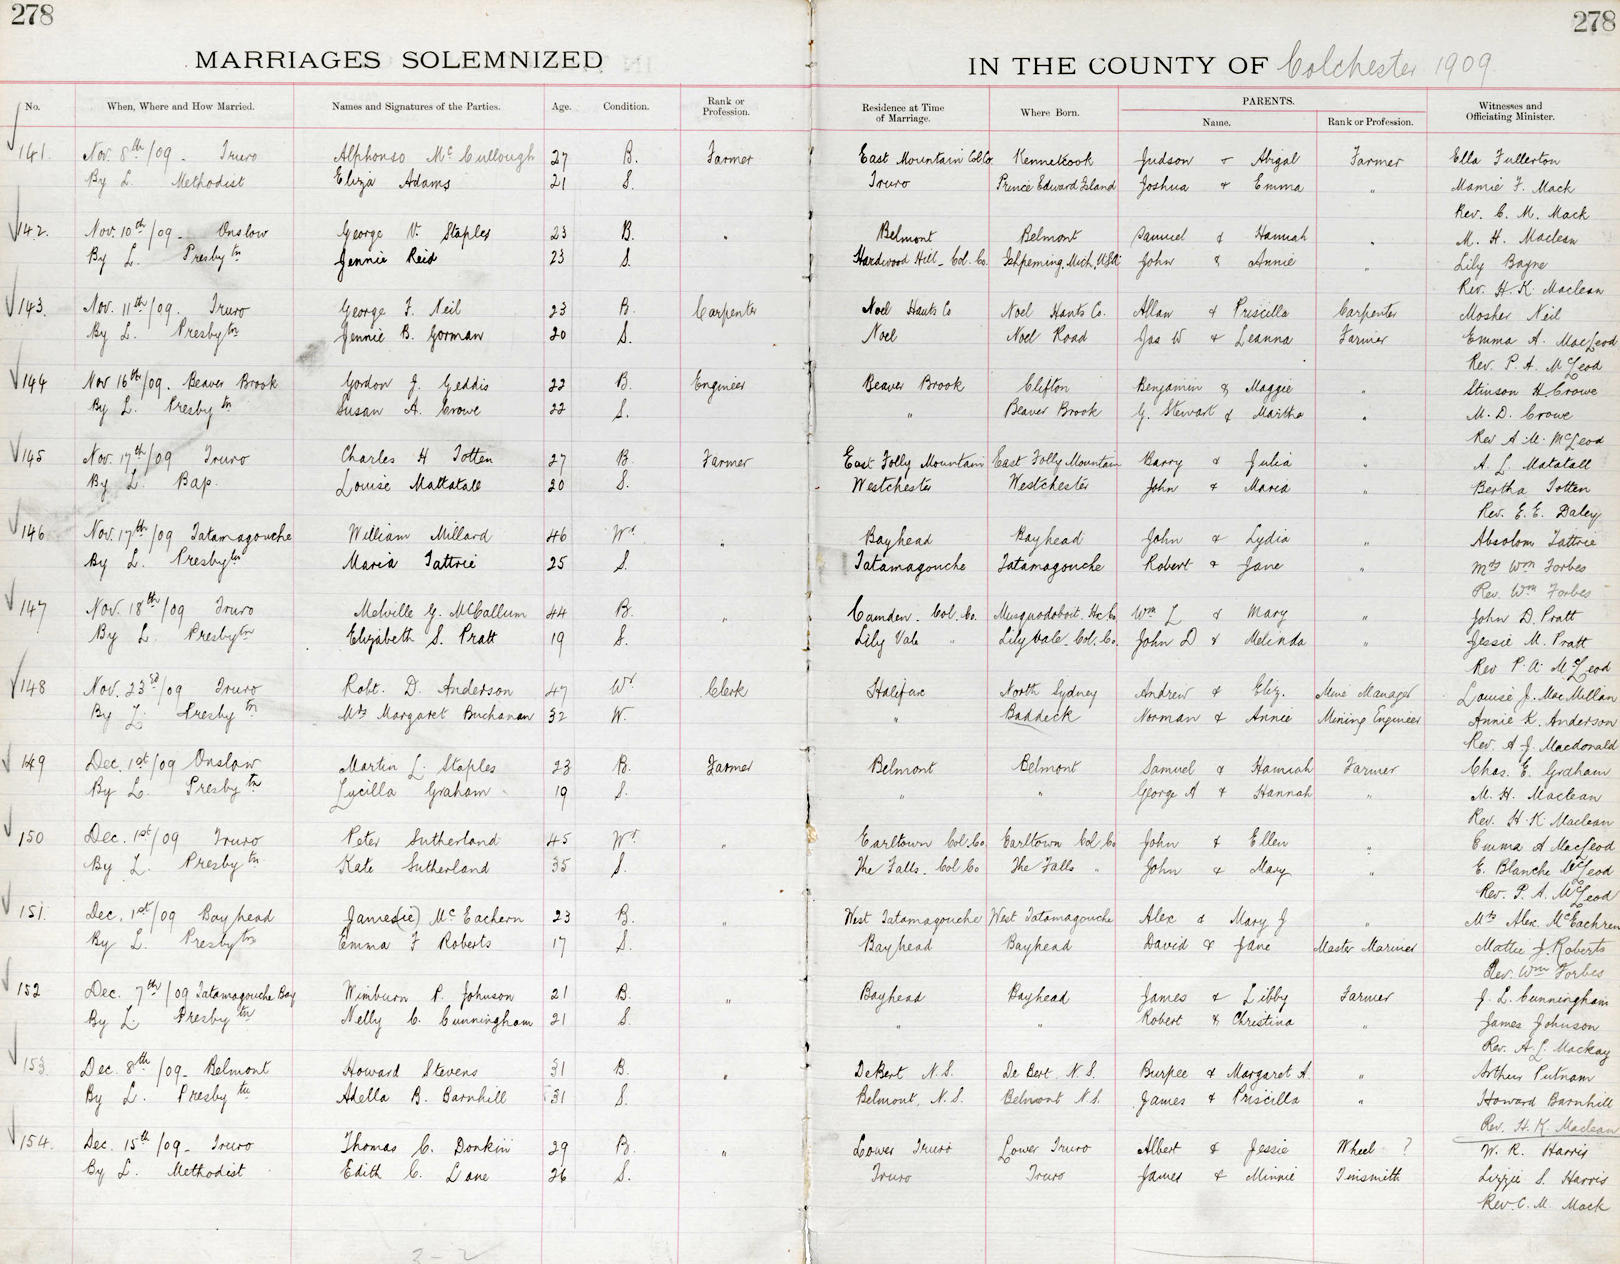 278 278
MARRIAGES SOLEMNIZED IN THE COUNTY OF Colchester 1909
No. When, Where and How Married. Names and Signatures of the Parties. Age. Condition. Rank or Profession. Residence at Time of Marriage. Where Born. PARENTS. Name. Rank or Profession. Witnesses and Officiating Minister.
141. Nov. 8th/09 - Truro Alphonso McCullough 27 B. Farmer East Mountain Col Co. Kennetcook Judson & Abigal Farmer Ella Fullerton
By L. Methodist Eliza Adams 21 S. Truro Prince Edward Island Joshua & Emma " Mamie F. Mack
Rev. C. M. Mack
142. Nov. 10th/09 - Onslow George V. Staples 23 B. " Belmont Belmont Samuel & Hannah " M. H. Maclean
By L. Presbytn Jennie Reid 23 S. Hardwood Hill - Col. Co. Ishpeming, Mich, USA John & Annie " Lily Bayne
Rev. H. K. Maclean
143. Nov. 11th/09. Truro George F. Neil 23 B. Carpenter Noel Hants Co Noel Hants Co. Allan & Priscilla Carpenter Mosher Neil
By L. Presbytn Jennie B. Gorman 20 S. Noel Noel Road Jas W & Leanna Farmer Emma A. MacLeod
Rev. P. A. McLeod
144 Nov 16th/09. Beaver Brook Gordon J. Geddis 22 B. Engineer Beaver Brook Clifton Benjamin & Maggie " Stinson H. Crowe
By L. Presbytn Susan A. Crowe 22 S. " Beaver Brook G. Stewart & Martha " M. D. Crowe
Rev A. M. McLeod
145 Nov. 17th/09 Truro Charles H Totten 27 B. Farmer East Folly Mountain East Folly Mountain Barry & Julia " A. L. Matatall
By L. Bap. Louise Mattatall 20 S. Westchester Westchester John & Maria " Bertha Totten
Rev. E. E. Daley
146 Nov. 17th/09 Tatamagouche William Millard 46 Wr. " Bayhead Bayhead John & Lydia " Absolom Tattrie
By L. Presbytn Maria Tattrie 25 S. Tatamagouche Tatamagouche Robert & Jane " Mrs Wm Forbes
Rev. Wm Forbes
147 Nov. 18th/09 Truro Melville G. McCallum 44 B. " Camden. Col. Co. Musquodoboit. Hx Co Wm L & Mary " John D. Pratt
By L. Presbytn Elizabeth S. Pratt 19 S. Lily Vale " Lily Vale. Col. Co. John D & Melinda " Jessie M. Pratt
Rev P. A. McLeod
148 Nov. 23rd/09 Truro Robt. D. Anderson 47 Wr Clerk Halifax North Sydney Andrew & Eliz. Mine Manager Louise J. MacMillan
By L. Presbytn Mrs Margaret Buchanan 32 W. " Baddeck Norman & Annie Mining Engineer Annie K. Anderson
Rev. A. J. Macdonald
149 Dec. 1st/09 Onslow Martin L. Staples 23 B. Farmer Belmont Belmont Samuel & Hannah Farmer Chas. E. Graham
By L. Presbytn Lycilla Graham 19 S. " " George A & Hannah " M. H. Maclean
Rev. H. K Maclean
150 Dec. 1st/09 Truro Peter Sutherland 45 Wr. " Earltown Col. Co. Earltown Col Co John & Ellen " Emma A MacLeod
By L. Presbytn Kate Sutherland 35 S. The Falls. Col Co The Falls " John & Mary " E. Blanche McLeod
Rev. P. A. McLeod
151. Dec. 1st/09 Bayhead James(ie) McEachern 23 B. " West Tatamagouche West Tatamagouche Alex & Mary J " Mrs Alex. McEachren
By L. Presbytn Emma F Roberts 17 S. Bayhead Bayhead David & Jane Master Mariner Mattie J. Roberts
Rev. Wm Forbes
152 Dec. 7th/09 Tatamagouche Bay Wimburn P. Johnson 21 B. " Bayhead Bayhead James & Libby Farmer J. L. Cunningham
By L. Presbytn Nelly C. Cunningham 21 S. " " Robert & Christina " James Johnson
Rev. A. L. Mackay
153. Dec. 8th/09 - Belmont Howard Stevens 31 B. " DeBert N.S. De Bert. N.S. Burpee & Margaret A. " Arthur Putnam
By L. Presbytn Adella B. Barnhill 31 S. Belmont, N.S. Belmont N.S. James & Priscilla " Howard Barnhill
Rev. H. K. Maclean
154. Dec. 15th/09 - Truro Thomas C. Donkin 29 B. " Lower Truro Lower Truro Albert & Jessie Wheel ? W. R. Harris
By L. Methodist Edith C. Lane 26 S. Truro Truro James & Minnie Tinsmith Lizzie S. Harris
Rev. C. M. Mack
3-2